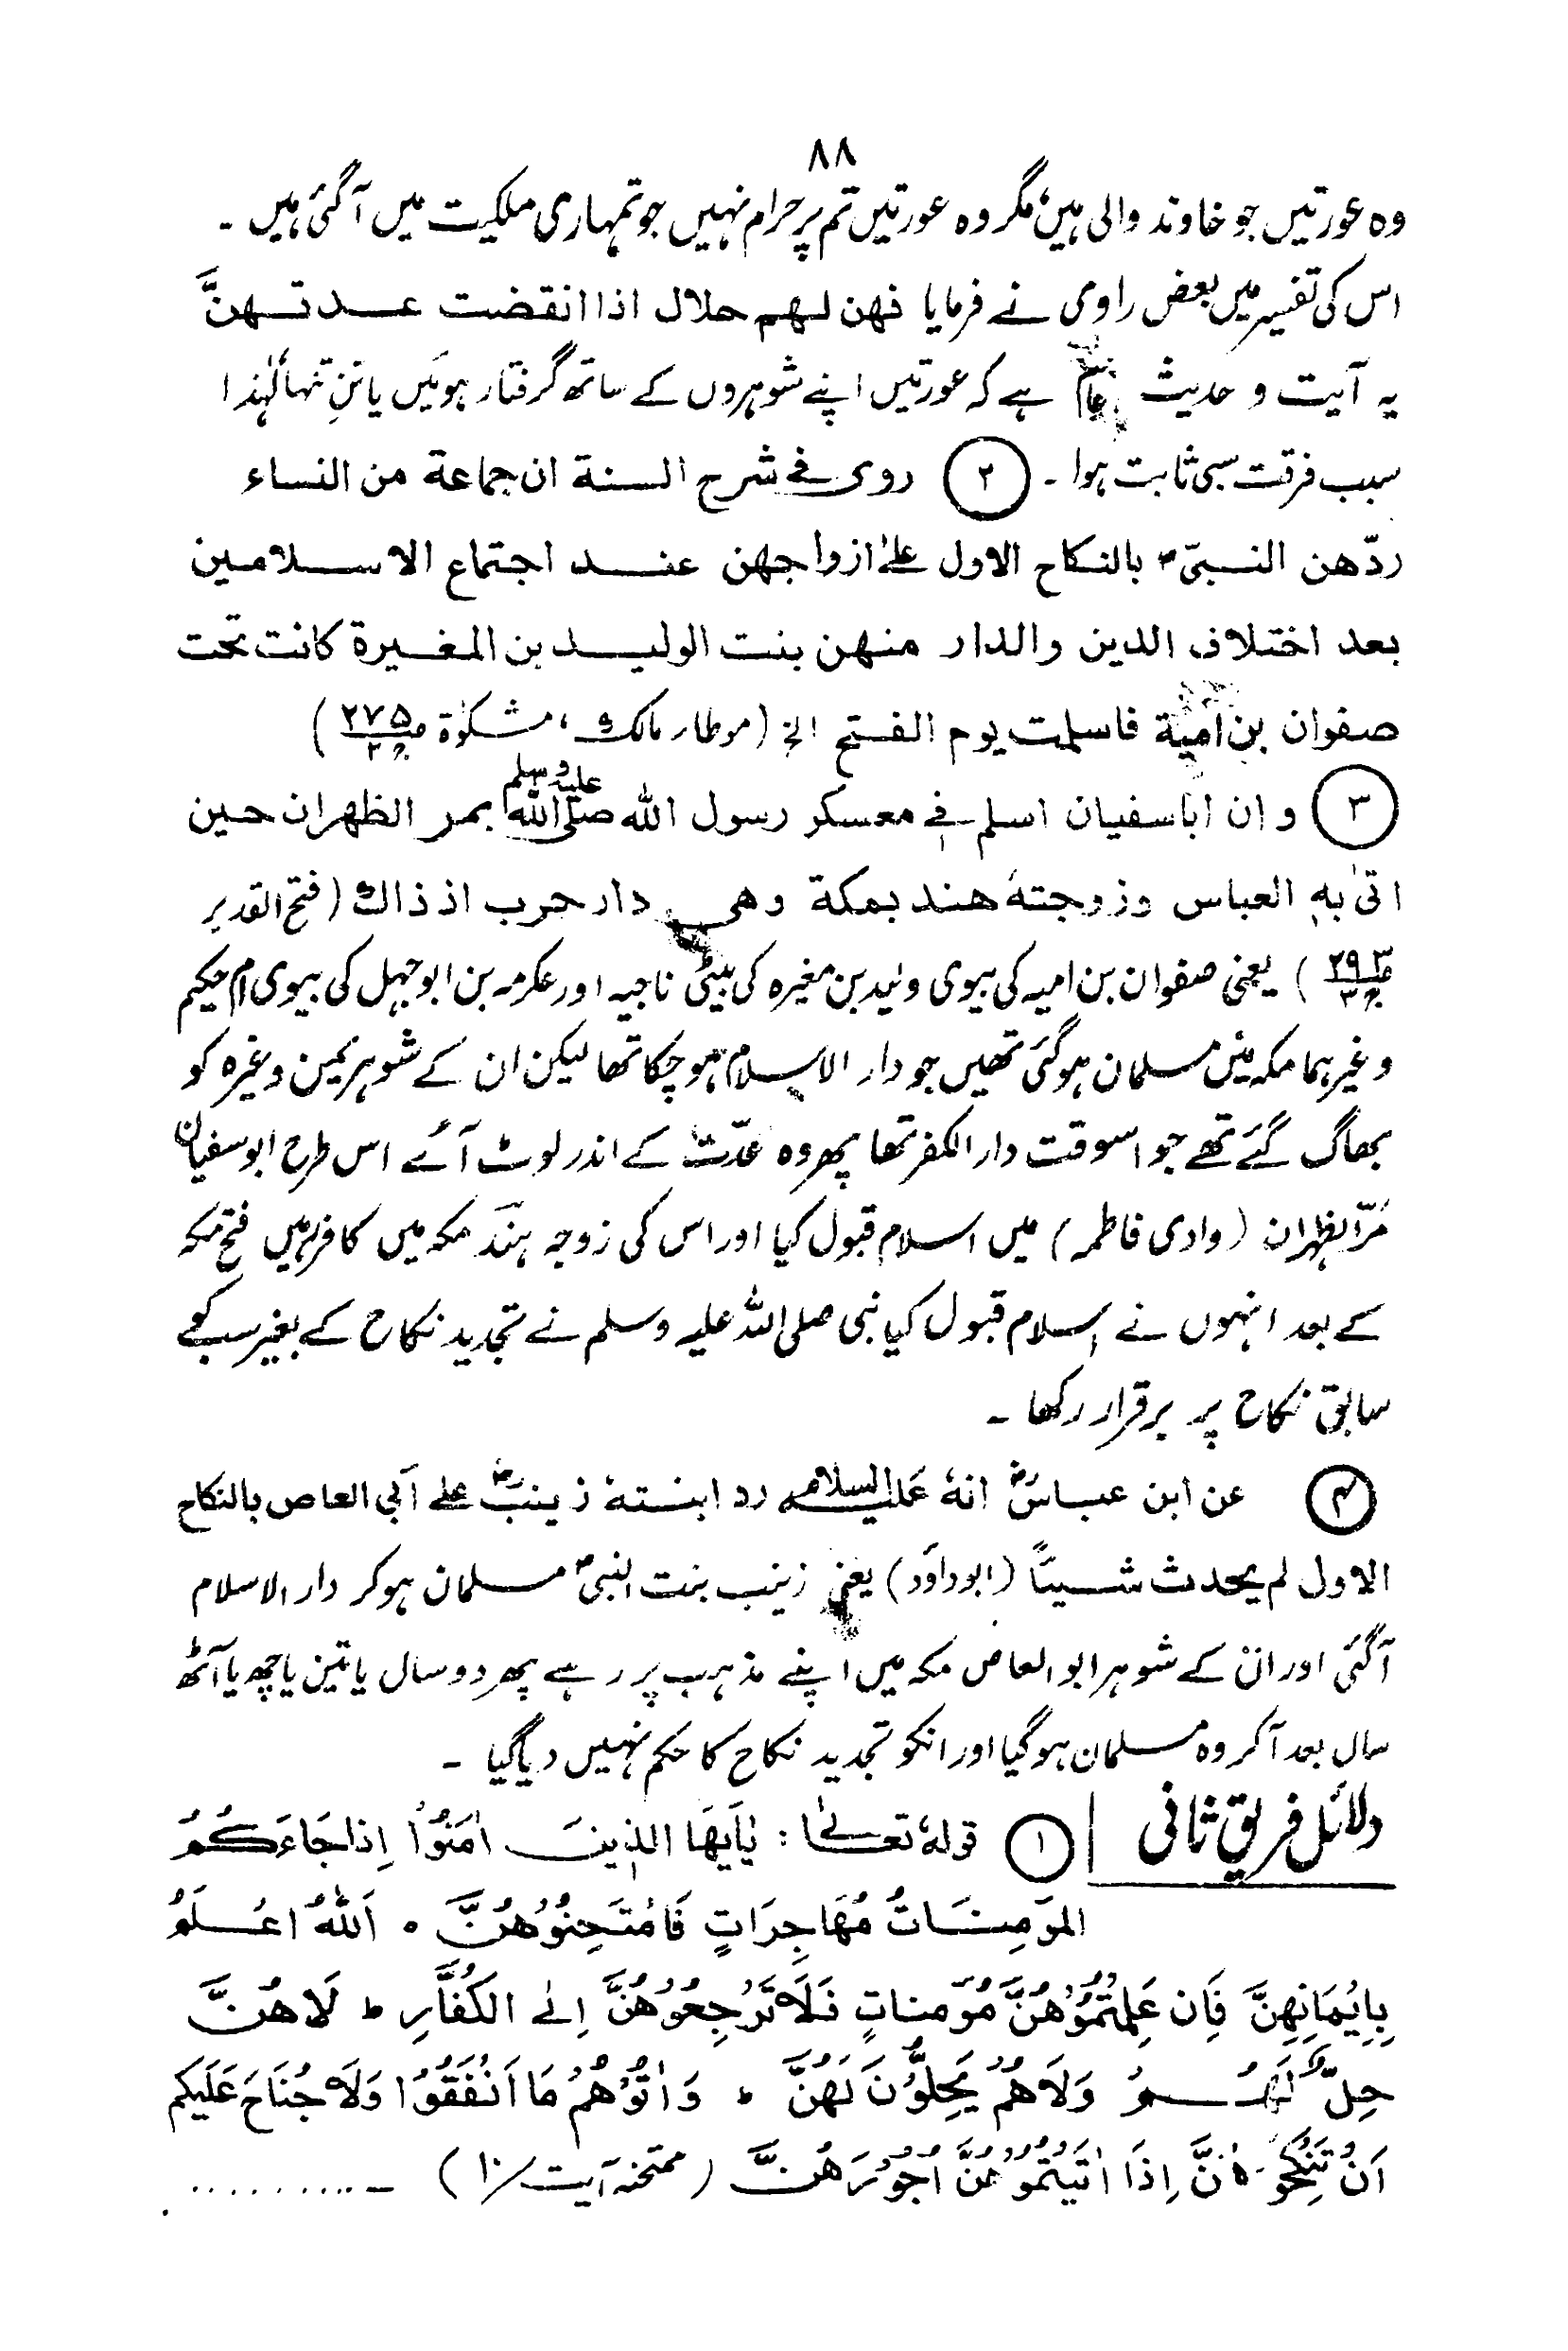 ۸۸
وہ عورتیں جو خاوند والی ہیں، مگر وہ عورتیں تم پر حرام نہیں جو تمہاری ملکیت میں آگئی ہیں ۔
اس کی تفسیر میں بعض راوی نے فرمایا فهن لهم حلال اذا انقضت عدتهنَّ
یہ آیت و حدیث عام ہے کہ عورتیں اپنے شوہروں کے ساتھ گرفتار ہوئیں یا تنِ تنہا لہٰذا
سبب فرقت سبی ثابت ہوا ۔ ۲ روی فی شرح السنة ان جماعة من النساء
ردّهن النبیّ ؐ بالنكاح الاول علیٰ ازواجهن عند اجتماع الاسلامین
بعد اختلاف الدین والدار منهن بنت الولید بن المغیرة كانت تحت
صفوان بن امیة فاسلمت یوم الفتح الخ (موطا مالک، مشکوٰة ص۲۷۵ ج۲)
۳ و ان اباسفیان اسلم فی معسكر رسول الله صلی الله علیه وسلم بمر الظهران حین
اتیٰ بهٖ العباس وزوجتهٗ هند بمكة وهی دار حرب اذ ذاك (فتح القدیر
ص۲۹۳ ج۳) یعنی صفوان بن امیہ کی بیوی ولید بن مغیرہ کی بیٹی ناجیہ اور عکرمہ بن ابوجہل کی بیوی ام حکیم
وغیرہما مکہ میں مسلمان ہوگئی تھیں جو دار الاسلام ہوچکا تھا لیکن ان کے شوہر یمن وغیرہ کو
بھاگ گئے تھے جو اسوقت دار الکفر تھا پھر وہ عدّت کے اندر لوٹ آئے اس طرح ابوسفیان
مَرّ الظہران (وادی فاطمہ) میں اسلام قبول کیا اور اس کی زوجہ ہند مکہ میں کافر رہیں فتح مکہ
کے بعد انہوں نے اسلام قبول کیا نبی صلی اللہ علیہ وسلم نے تجدید نکاح کے بغیر سب کے
سابق نکاح پر برقرار رکھا ۔
۴ عن ابن عباسؓ انهٗ علیه السلام رد ابنتهٗ زینبؓ علی ابی العاص بالنكاح
الاول لم یحدث شیئاً (ابوداؤد) یعنی زینب بنت النبی ؐ مسلمان ہوکر دار الاسلام
آگئی اور ان کے شوہر ابوالعاص مکہ میں اپنے مذہب پر رہے پھر دو سال یا تین یا چھ یا آٹھ
سال بعد آکر وہ مسلمان ہوگیا اور انکو تجدید نکاح کا حکم نہیں دیا گیا ۔
دلائل فریق ثانی ۱ قولهٗ تعالیٰ: یٰاَیُّهَا الذینَ اٰمَنُوْا اِذا جَاءَكُمُ
المؤمِنَاتُ مُهَاجِرَاتٍ فَامْتَحِنُوْهُنَّ ۰ اَللهُ اعْلَمُ
بِاِیْمَانِهِنَّ فَاِن عَلِمْتُمُوْهُنَّ مُؤمناتٍ فَلَا تَرْجِعُوْهُنَّ اِلی الكُفَّارِ ط لَا هُنَّ
حِلٌّ لَّهُمْ وَلَا هُمْ یَحِلُّوْنَ لَهُنَّ ط وَاٰتُوْهُمْ مَا اَنْفَقُوْا وَلَا جُنَاحَ عَلَیكم
اَنْ تَنْكِحُوْهُنَّ اِذَا اٰتَیْتُمُوْهُنَّ اُجُوْرَهُنَّ (ممتحنہ آیت/۱۰) ـ ..........